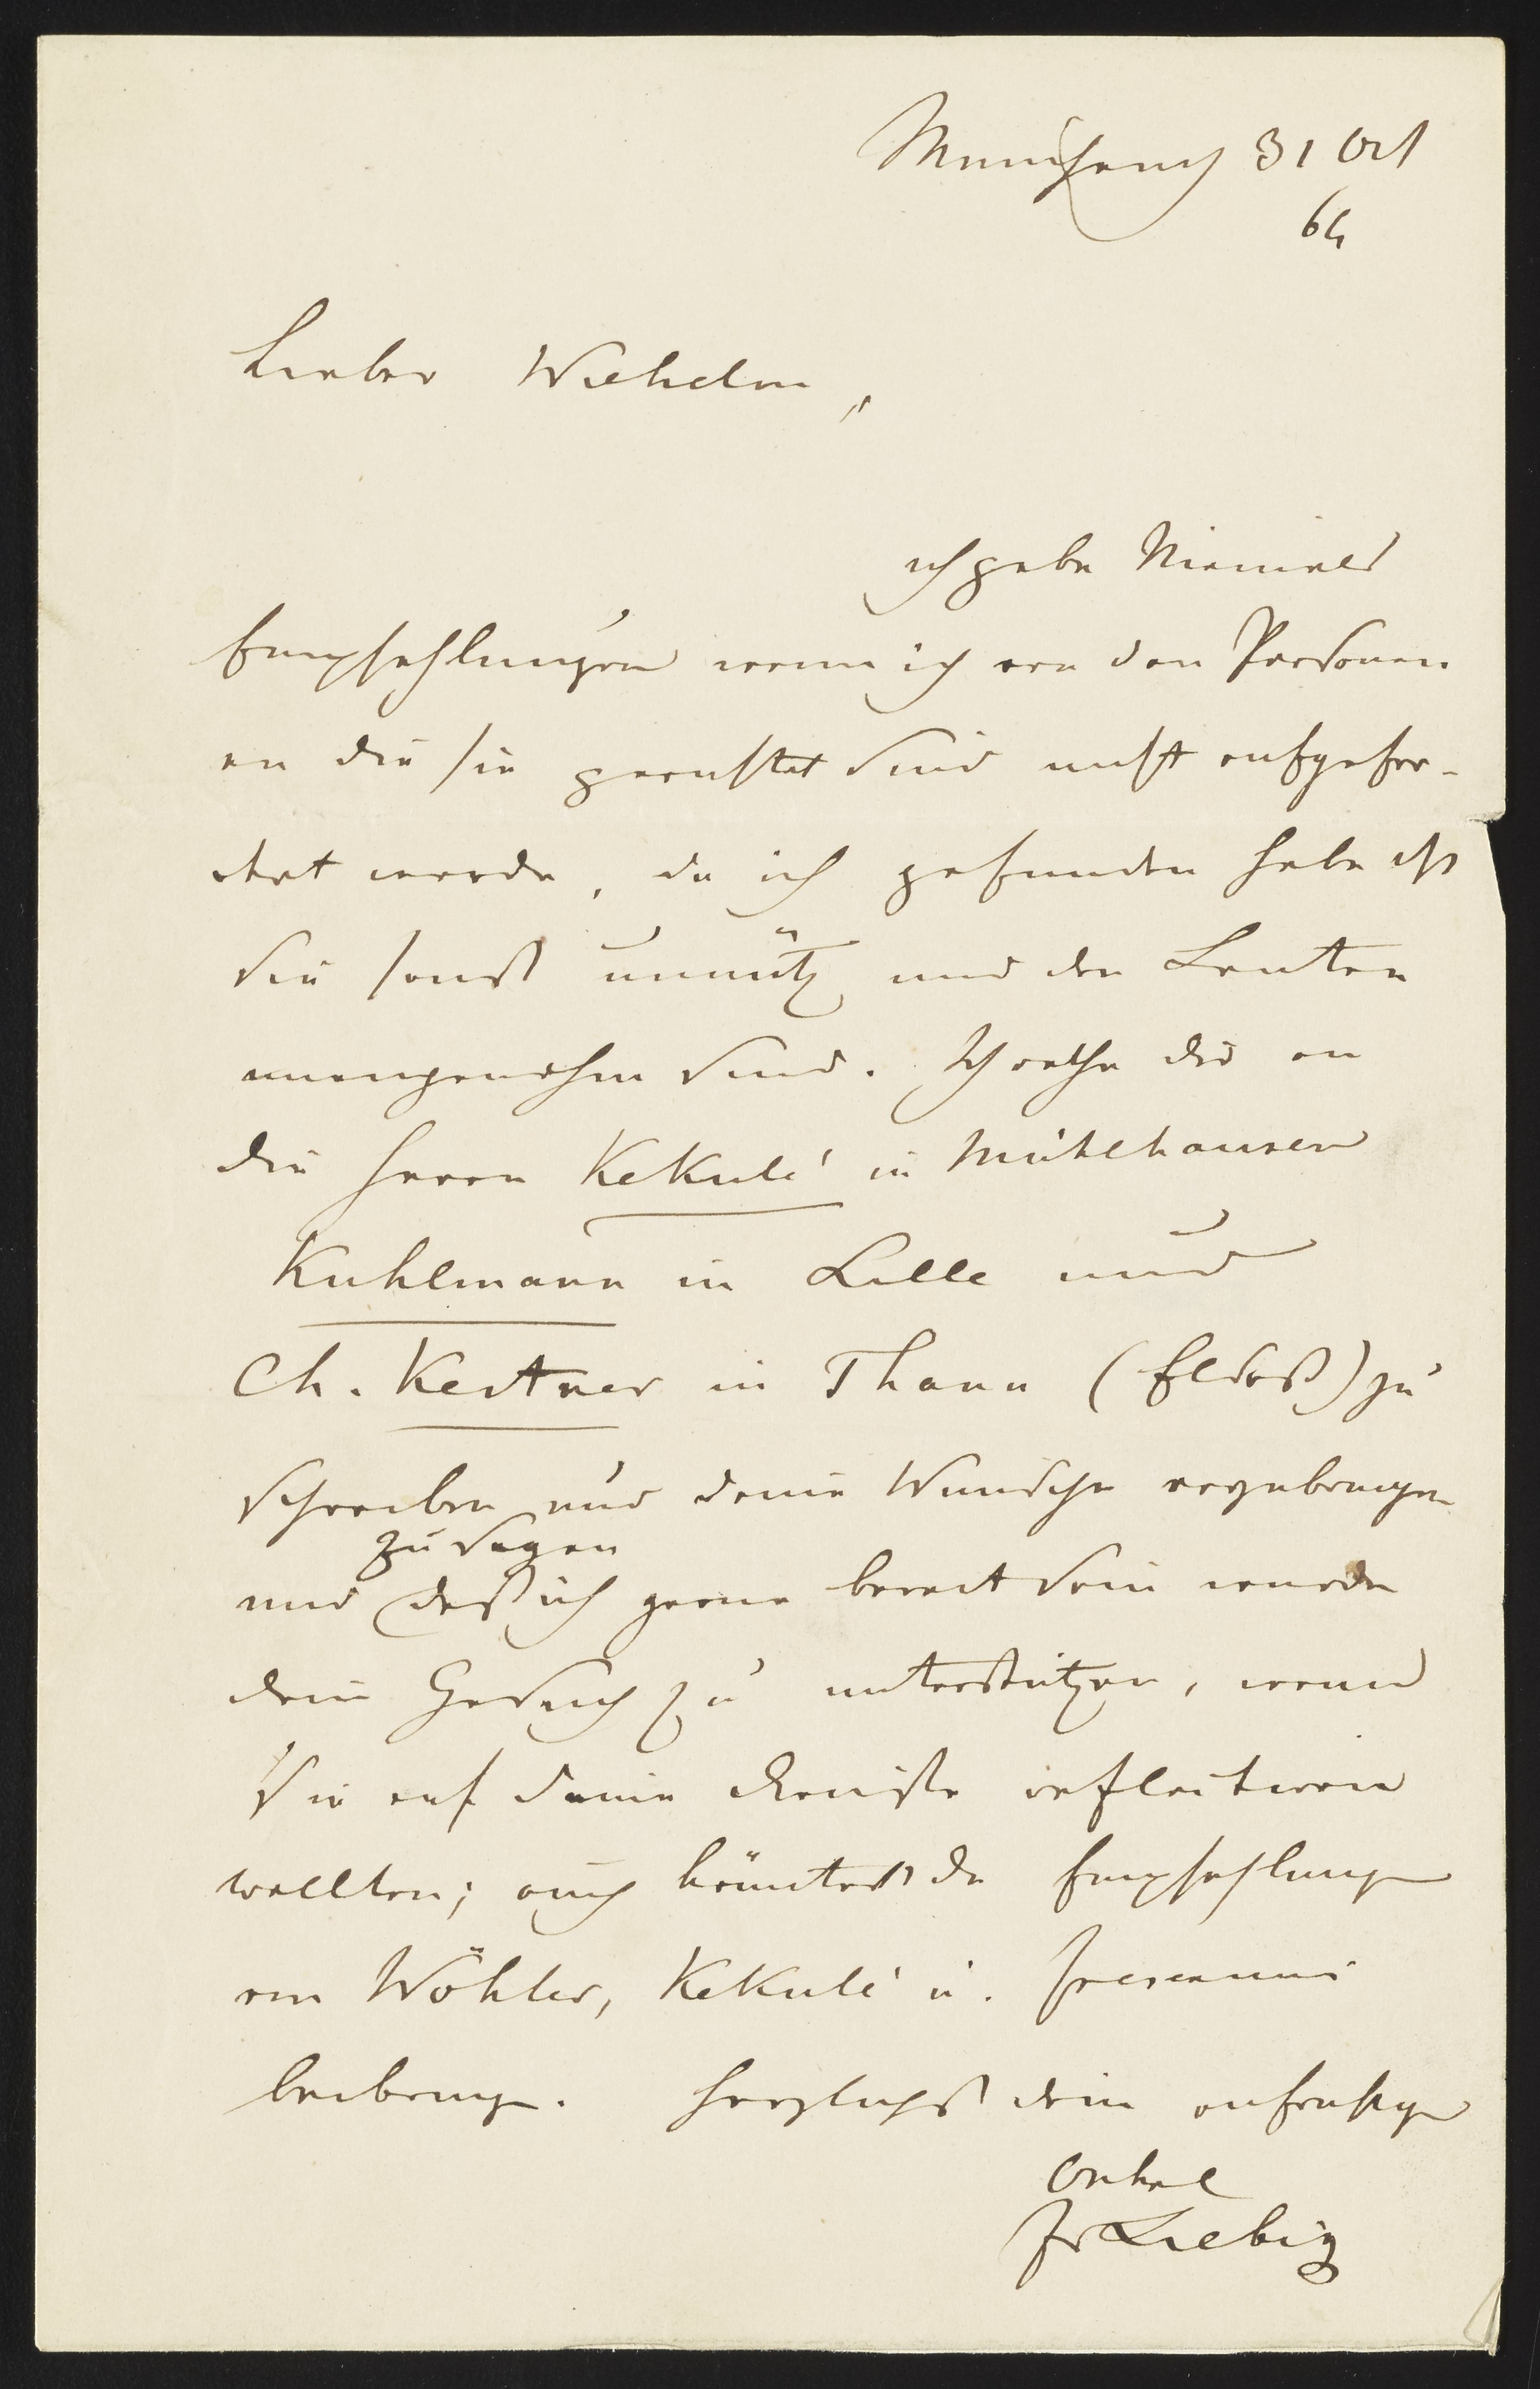 München 31 Oct
64
Lieber Wilhelm,
ich gebe Niemals
Empfehlungen wenn ich von den Personen
an die sie gerichtet sind nicht aufgefor-
dert werde, da ich gefunden habe daß
sie sonst unnütz und den Leuten
unangenehm sind. Ich rathe dir an
die Herrn Kekulé in Mühlhausen
Kuhlmann in Lille und
Ch. Kestner in Thann (Elsaß) zu
schreiben und deine Wünsche
zu sagen
und daß ich gerne bereit sein würde
dein Gesuch zu unterstützen, wenn
Sie auf deine Dienste reflectiren
wollten; auch könntest du Empfehlungen
von Wöhler, Kekulé u. Fresenius
beibringen. Herzlichst dein aufrichtiger
Onkel
Jv Liebig